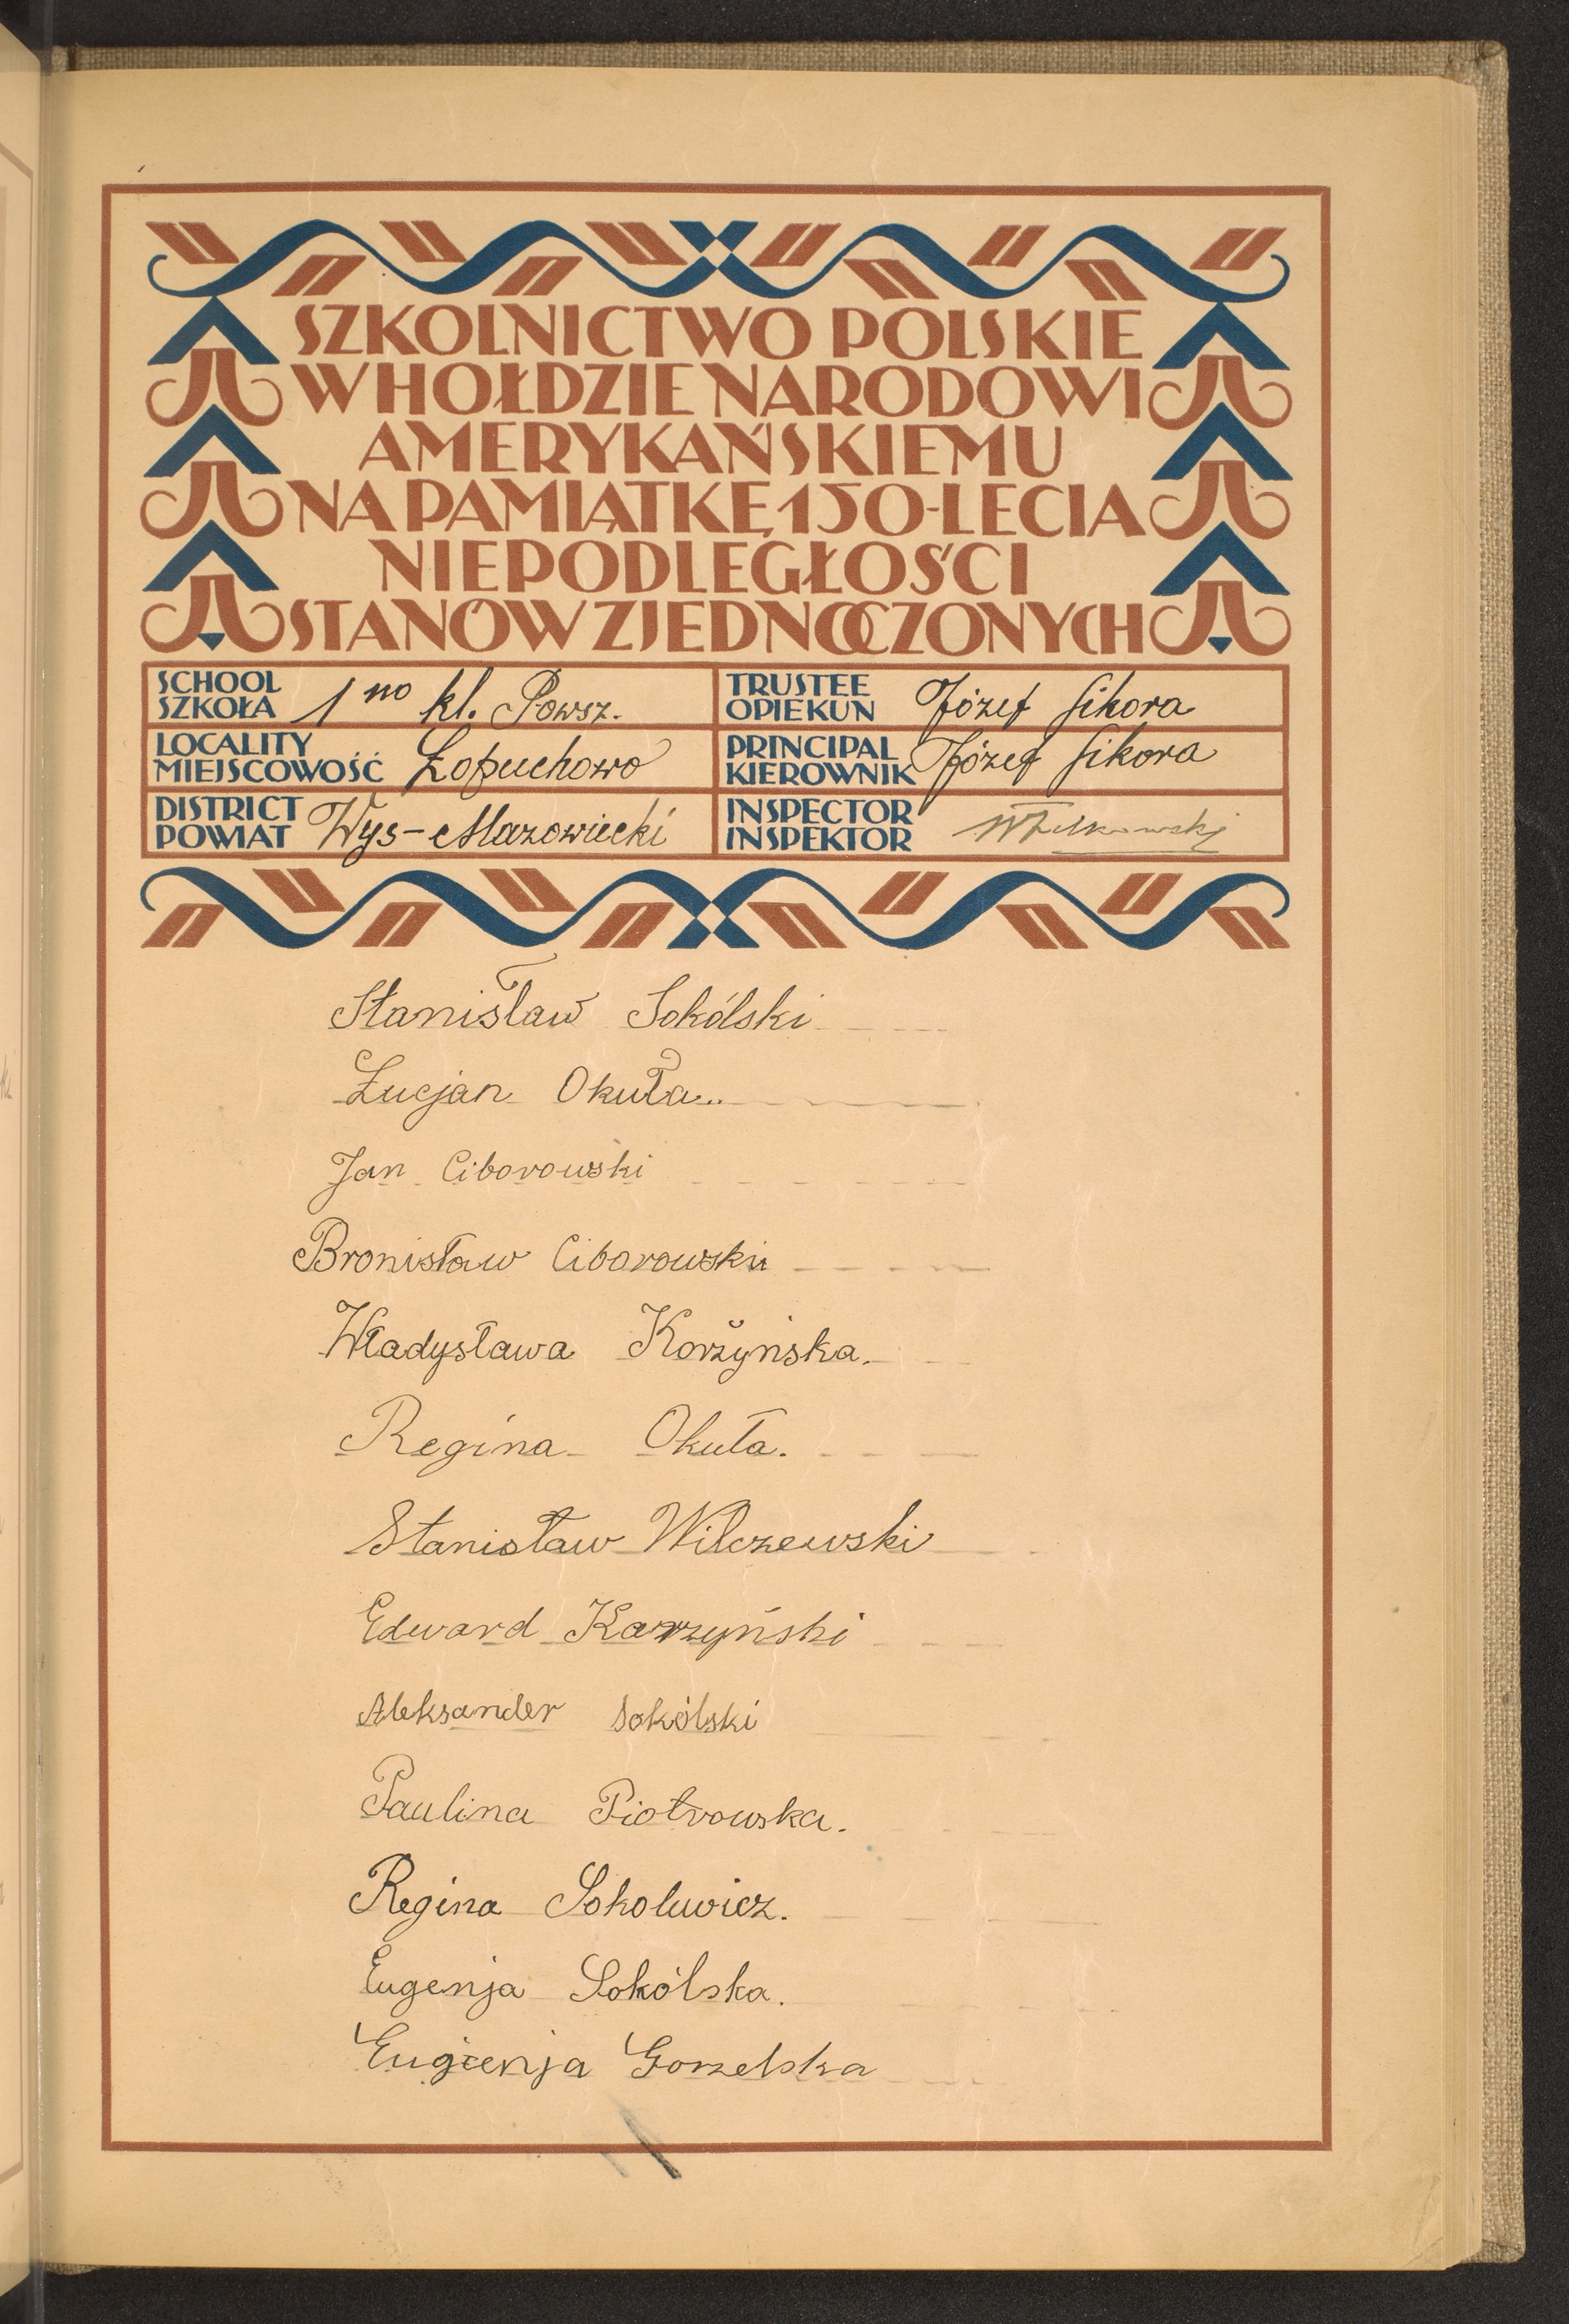 SZKOLNICTWO POLSKIE
W HOŁDZIE NARODOWI
AMERYKAŃSKIEMU
NA PAMIĄTKĘ 150-LECIA
NIEPODLEGŁOŚCI
STANÓW ZJEDNOCZONYCH
SCHOOL SZKOŁA 1 no kl. Powsz.
TRUSTEE OPIEKUN Józef Sikora
LOCALITY MIEJSCOWOŚĆ Łopuchowo
PRINCIPAL KIEROWNIK Józef Sikora
DISTRICT POWIAT Wys-Mazowiecki
INSPECTOR INSPEKTOR
Stanisław Sokólski
Łucjan Okuła
Jan Ciborowski
Bronisław Ciborowski
Władysława Korżyńska.
Regina Okuła.
Stanisław Wilczewski
Edward Karzyński
Aleksander Sokólski
Paulina Piotrowska.
Regina Sokoluwicz.
Eugenja Sokólska.
Eugienja Gorzelska